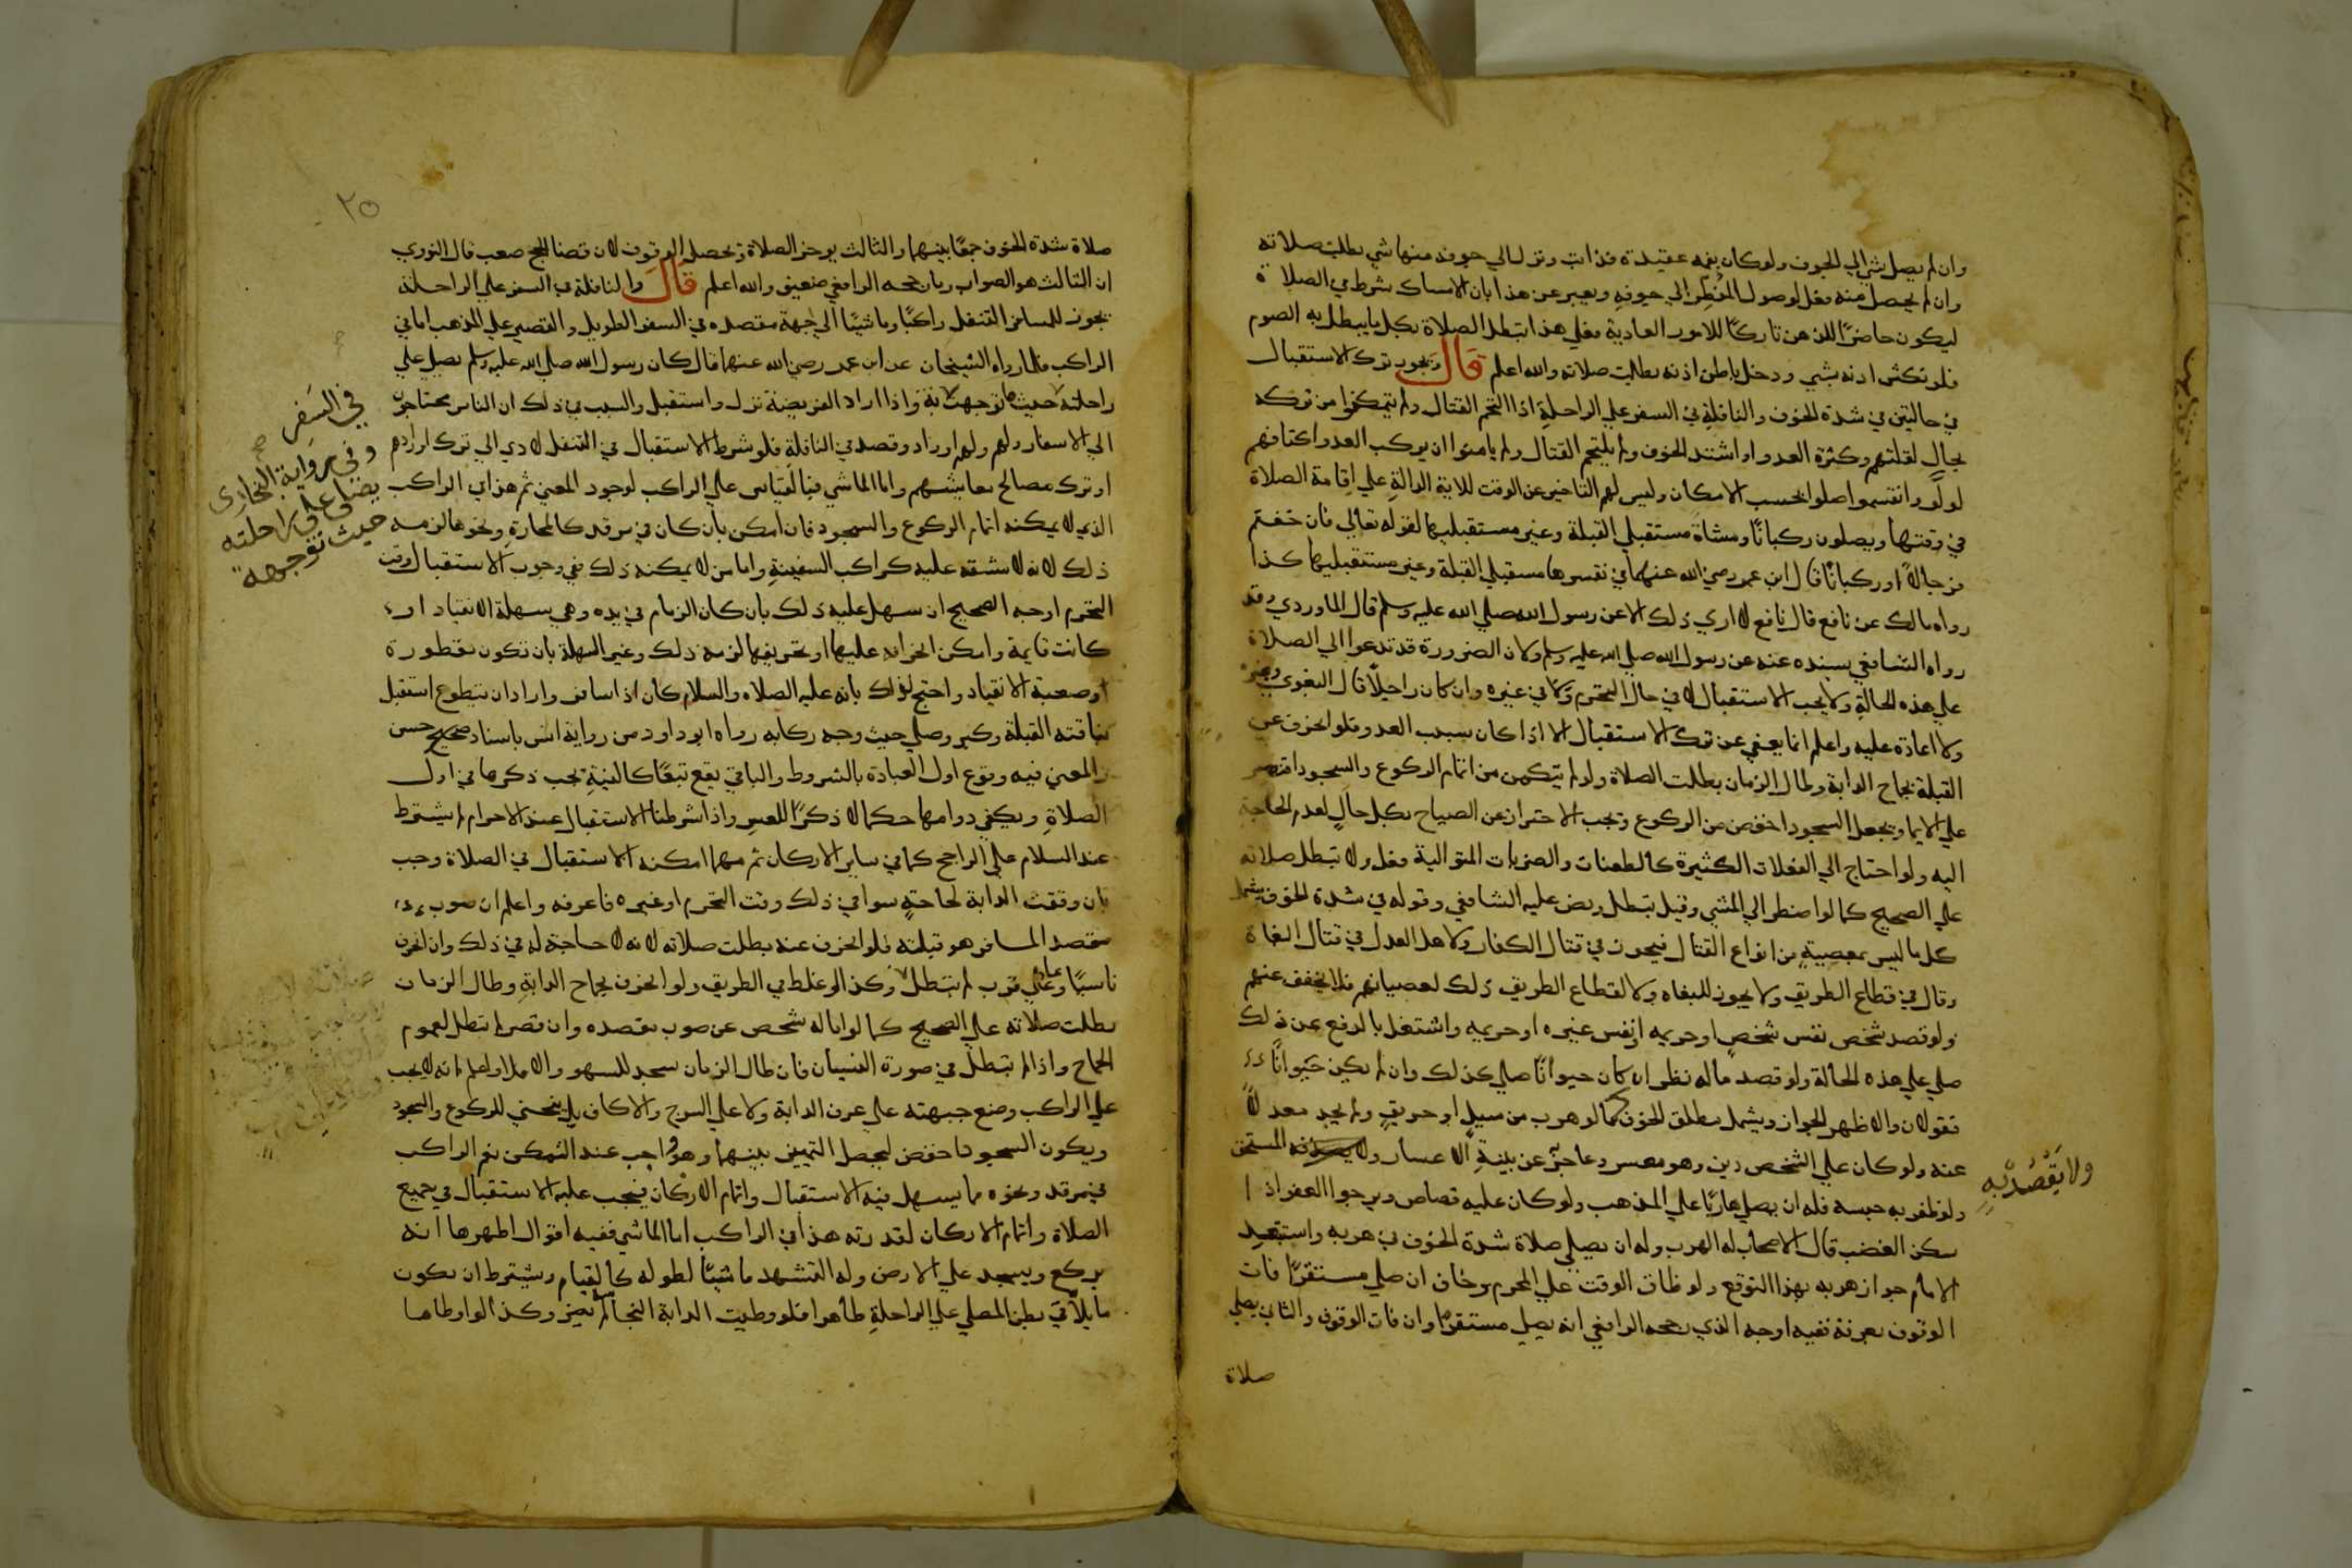 وان لم يصل شي الي الجوف ولو كان بفمه عقيدة فذابت ونزل الي جوفه منها شي بطلت صلاته
وان لم يحصل منه مضغ لوصول المفطر الي جوفه ويعبر عن هذا بان الامساك شرط في الصلاة
ليكون حاضر الذهن تاركا للامور العادية فعلي هذا تبطل الصلاة بكل ما يبطل به الصوم
فلو نكش اذنه بشي ودخل باطن اذنه بطلت صلاته والله اعلم قال ويجوز ترك الاستقبال
في حالتين في شدة الخوف والنافلة في السفر علي الراحلة اذا التحم القتال ولم يتمكنوا من تركه
بحال لقلتهم وكثرة العدو او اشتد الخوف ولم يلتحم القتال ولم يامنوا ان يركب العدو اكتافهم
لو ولوا وانقسموا صلوا بحسب الامكان وليس لهم التاخير عن الوقت للاية الدالة علي اقامة الصلاة
في وقتها ويصلون ركبانا ومشاة مستقبلي القبلة وغير مستقبليها لقوله تعالي فان خفتم
فرجالا او ركبانا قال ابن عمر رضي الله عنهما في تفسيرها مستقبلي القبلة وغير مستقبليها كذا
رواه مالك عن نافع قال نافع لا اري ذلك الا عن رسول الله صلي الله عليه وسلم قال الماوردي وقد
رواه الشافعي بسنده عنه عن رسول الله صلي الله عليه وسلم ولان الضرورة قد تدعوا الي الصلاة
علي هذه الحالة ولا يجب الاستقبال لا في حال التحرم ولا في غيره وان كان راجلا قال البغوي وغيره
ولا اعادة عليه واعلم انما يعفي عن ترك الاستقبال الا اذا كان بسبب العدو فلو انحرف عن
القبلة بجماح الدابة وطال الزمان بطلت الصلاة ولو لم يتمكن من اتمام الركوع والسجود اقتصر
علي الايما ويجعل السجود اخفض من الركوع ويجب الاحتراز عن الصياح بكل حال لعدم الحاجة
اليه ولو احتاج الي الفعلات الكثيرة كالطعنات والضربات المتوالية فعل ولا تبطل صلاته
علي الصحيح كما لو اضطر الي المشي وقيل تبطل ونص عليه الشافعي وقوله في شدة الخوف يشمل
كل ما ليس بمعصية من انواع القتال فيجوز في قتال الكفار ولاهل العدل في قتال البغاة
وقال في قطاع الطريق ولا يجوز للبغاه ولا لقطاع الطريق ذلك لعصيانهم فلا يخفف عنهم
ولو قصد شخص نفس شخص او حريمه او نفس غيره او حريمه واشتغل بالدفع عن ذلك
صلي علي هذه الحالة ولو قصد ماله نظر ان كان حيوانا صلي كذلك وان لم يكن حيوانا
فقولان والاظهر الجواز ويشمل مطلق الخوف كما لو هرب من سيل او حريق ولم يجد معدلا
عنه ولو كان علي الشخص دين وهو معسر وعاجز عن بينة الاعسار ولا يصدقه المستحق
ولو ظفر به حبسه فله ان يصلي هاربا علي المذهب ولو كان عليه قصاص ويرجوا العفو اذا
سكن الغضب قال الاصحاب له الهرب وله ان يصلي صلاة شدة الخوف في هربه واستبعد
الامام جواز هربه بهذا التوقع ولو ضاق الوقت علي المحرم وخاف ان صلي مستقرا فات
الوقوف بعرفة ففيه اوجه الذي صححه الرافعي انه يصلي مستقرا وان فات الوقوف والثاني يصلي
صلاة
ولا يقصد به
٢٥
صلاة شدة الخوف جمعا بينهما والثالث يوخر الصلاة وتحصل الوقوف لان قضا الحج صعب قال النووي
ان الثالث هو الصواب وبان صححه الرافعي ضعيف والله اعلم قال والنافلة في السفر علي الراحلة
يجوز للمسافر التنفل راكبا وماشيا الي جهة مقصده في السفر الطويل والقصير علي المذهب اما في
الراكب فلما رواه الشيخان عن ابن عمر رضي الله عنهما قال كان رسول الله صلي الله عليه وسلم يصلي علي
راحلته حيث ما توجهت به واذا اراد الفريضة نزل واستقبل والسبب في ذلك ان الناس محتاجون
الي الاسفار ولهم اوراد وقصد في النافلة فلو شرط الاستقبال في التنفل لادي الي ترك اورادهم
او ترك مصالح معاشهم واما الماشي فبالقياس علي الراكب لوجود المعني ثم هذا في الراكب
الذي لا يمكنه اتمام الركوع والسجود فان امكن بان كان في مرقد كالمحارة ونحوها لزمه
ذلك لانه لا مشقة عليه كراكب السفينة واما من لا يمكنه ذلك ففي وجوب الاستقبال وقت
التحرم اوجه الصحيح ان سهل عليه ذلك بان كان الزمام في يده وهي سهلة الانقياد او
كانت قايمة وامكن انحرافه عليها او تحريفها لزمه ذلك وغير السهلة بان تكون مقطورة
او صعبة الانقياد واحتج لذلك بانه عليه الصلاه والسلام كان اذا سافر واراد ان يتطوع استقبل
بناقته القبلة وكبر وصلي حيث وجه ركابه رواه ابو داود من رواية انس باسناد صحيح حسن
والمعني فيه وقوع اول العبادة بالشروط والباقي يقع تبعا كالنية يجب ذكرها في اول
الصلاة ويكفي دوامها حكما لا ذكرا للعسر واذا شرطنا الاستقبال عند الاحرام لم يشترط
عند السلام علي الراجح كما في ساير الاركان ثم مهما امكنه الاستقبال في الصلاة وجب
بان وقفت الدابة لحاجة سوا في ذلك وقت التحرم او غيره فاعرفه واعلم ان صوب
مقصد المسافر هو قبلته فلو انحرف عنه بطلت صلاته لانه لا حاجة له في ذلك وان انحرف
ناسيا وعاد علي قرب لم تبطل وكذا لو غلط في الطريق ولو انحرف بجماح الدابة وطال الزمان
بطلت صلاته علي الصحيح كما لو اماله شخص عن صوب مقصده وان قصر لم تبطل لعموم
الجماح واذا لم تبطل في صورة النسيان فان طال الزمان سجد للسهو والا فلا واعلم انه لا يجب
علي الراكب وضع جبهته علي عرف الدابة ولا علي السرج والاكاف بل ينحني للركوع والسجود
ويكون السجود اخفض ليحصل التمييز بينهما وهو واجب عند التمكن نعم الراكب
في مرقد ونحوه مما يسهل فيه الاستقبال واتمام الاركان فيجب عليه الاستقبال في جميع
الصلاة واتمام الاركان لقدرته هذا في الراكب اما الماشي ففيه اقوال اظهرها انه
يركع ويسجد علي الارض وله التشهد ماشيا لطوله كالقيام ويشترط ان يكون
ما يلاقي بطن المصلي علي الراحلة طاهرا فلو وطيت الدابة النجاسة لم يضر وكذا لو اوطاها
في السفر
وفي رواية البخاري
يصلي علي راحلته
حيث توجهت